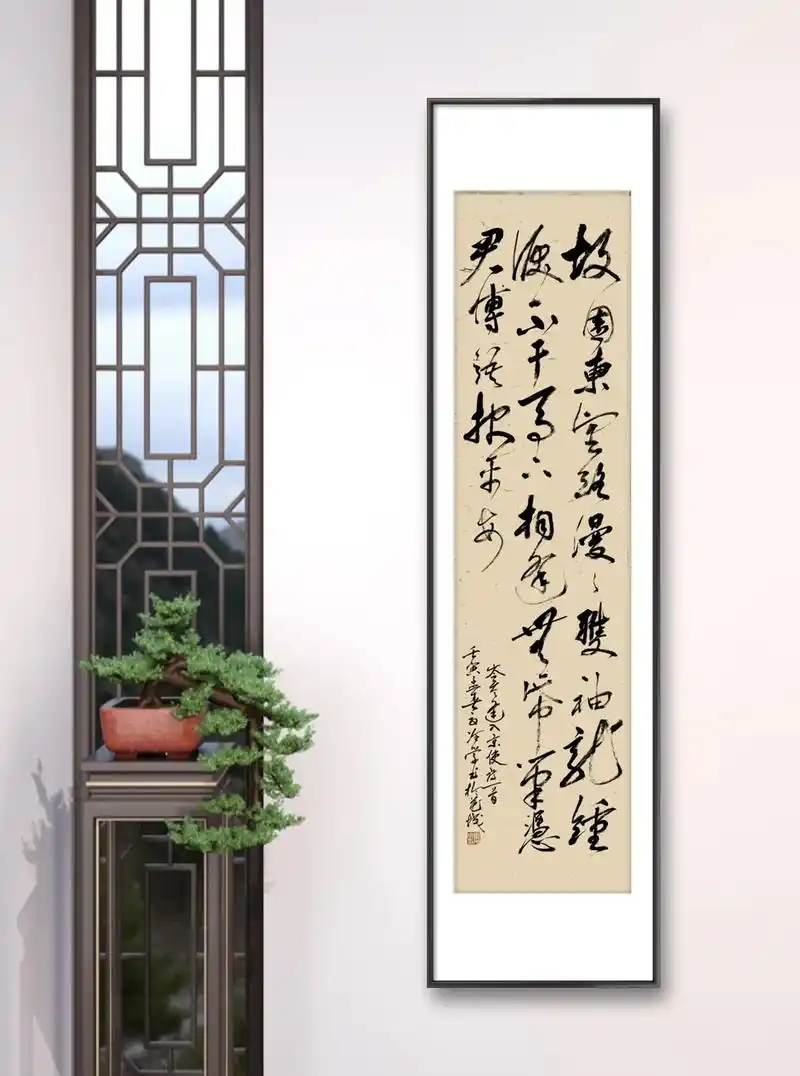 故園東望路漫々雙袖龍鍾
淚不干馬上相逢無帋筆憑
君傳語報平安
岑參逢入京使詩一首
壬寅孟春